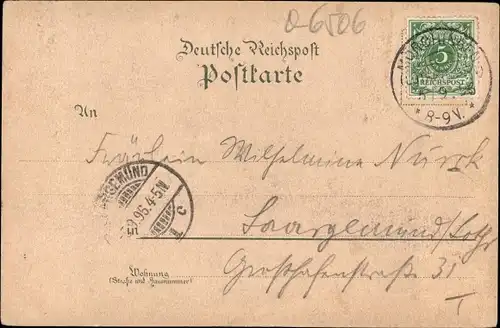 o-6506
Deutsche Reichspost
Postkarte
5
REICHSPOST
* 8-9V. *
An
Fräulein Wilhelmine
GEMÜND
9.96.4-5N
c
in
Saargemünd/Lothr
Wohnung
(Straße und Hausnummer)
31
T